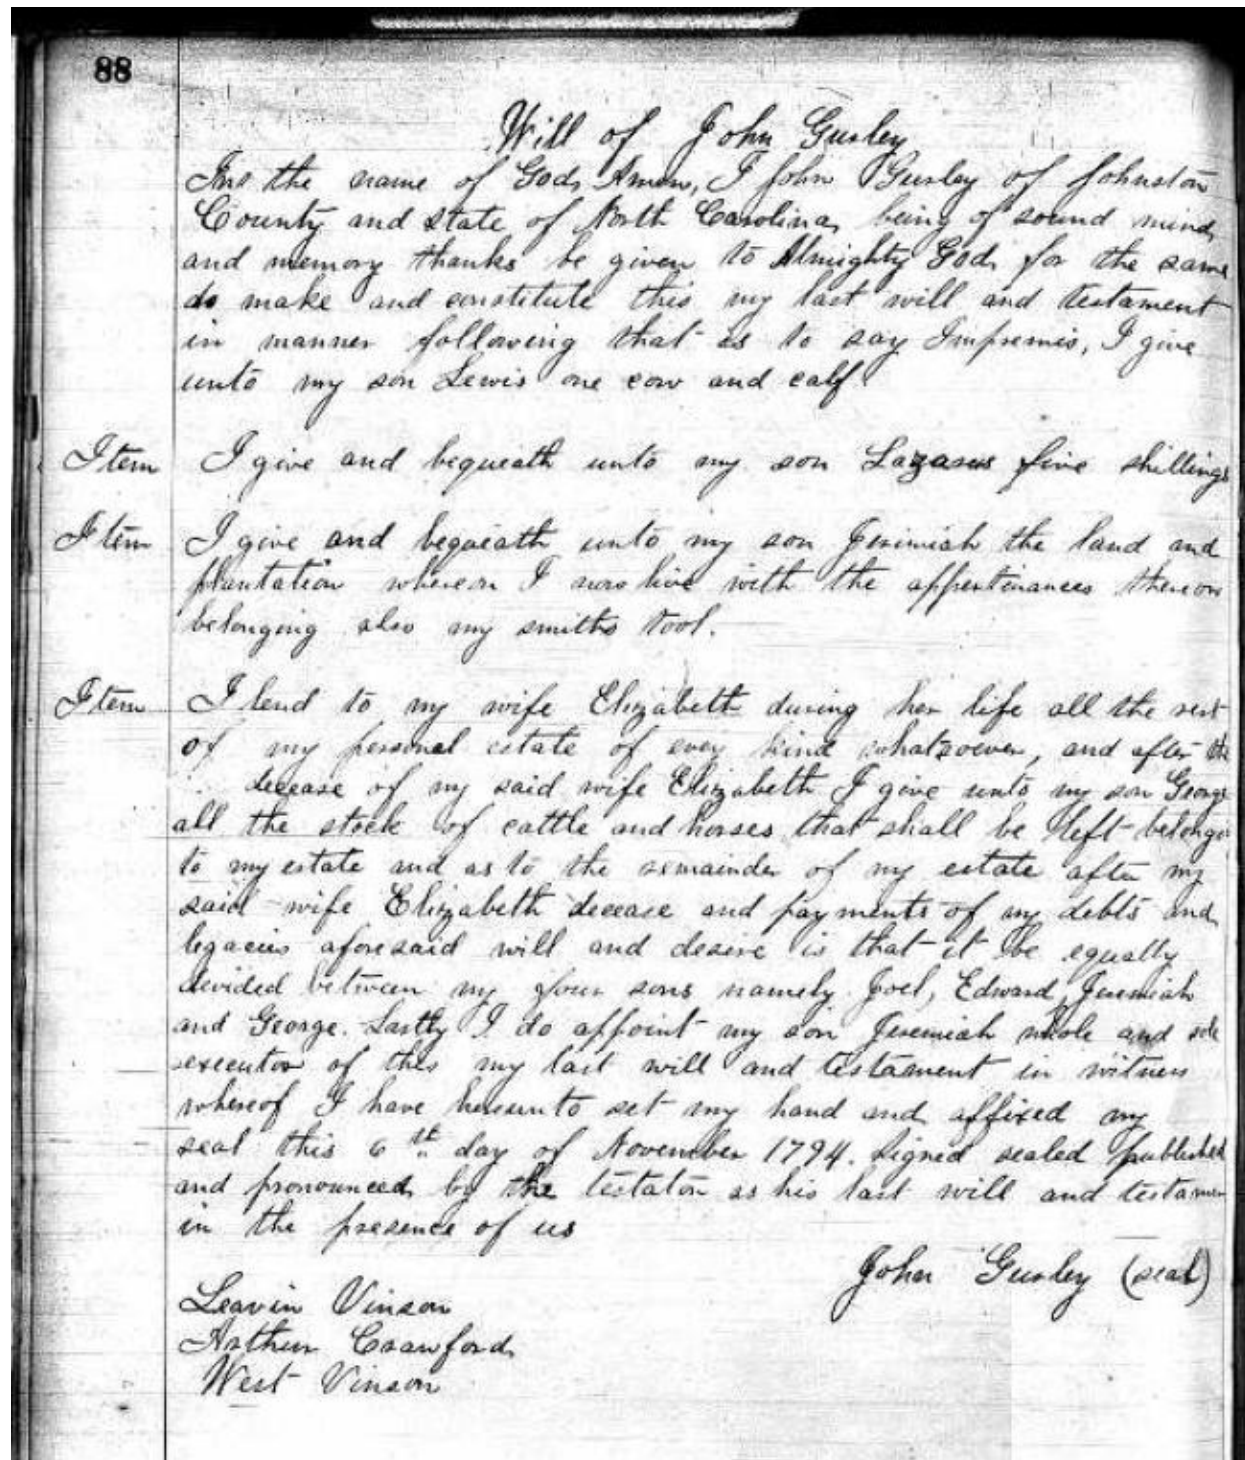 88
Will of John Gurley
In the name of God, Amen, I John Gurley of Johnston
County and state of North Carolina, being of sound mind,
and memory thanks be given to Almighty God, for the same
do make and constitute this my last will and testament
in manner following that is to say Impremis, I give
unto my son Lewis one cow and calf
Item I give and bequeath unto my son Lazarus five shillings
Item I give and beqaeath unto my son Jerimiah the land and
plantation whereon I now live with the appertinances thereon
belonging also my smiths tool.
Item I lend to my wife Elizabeth during her life all the rest
of my personal estate of every kind whatsoever, and after the
decease of my said wife Elizabeth I give unto my son George
all the stock of cattle and horses that shall be left belongi
to my estate and as to the remainder of my estate after my
said wife Elizabeth decease and payments of my debts and
legacies aforesaid will and desire is that it be equally
devided between my four sons namely Joel, Edward, Jeremiah
and George. Lastly I do appoint my son Jeremiah whole and sole
executor of this my last will and testament in witness
whereof I have hereunto set my hand and affixed my
seal this 6th day of November 1794. Signed sealed published
and pronounced by the testator as his last will and testamen
in the presence of us
John Gurley (seal)
Leavin Vinson
Arthur Crawford,
West Vinson